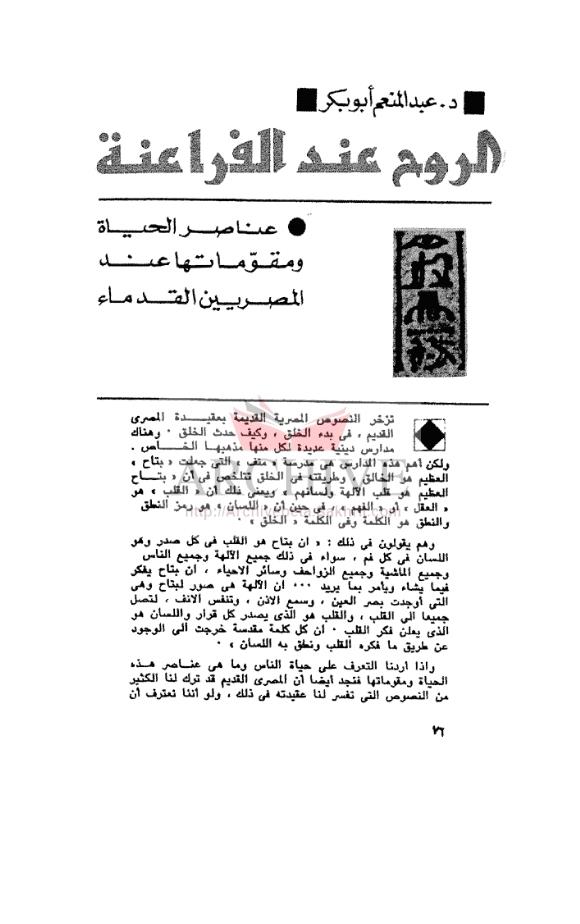 د. عبد المنعم أبو بكر
الروح عند الفراعنة
عناصر الحياة
ومقوّماتها عند
المصريين القدماء
تزخر النصوص المصرية القديمة بعقيدة المصرى
القديم ، فى بدء الخلق ، وكيف حدث الخلق . وهناك
مدارس دينية عديدة لكل منها مذهبها الخاص .
ولكن أهم هذه المدارس هى مدرسة « منف » التى جعلت « بتاح »
العظيم هو الخالق ، وطريقته فى الخلق تتلخص فى أن « بتاح
العظيم هو قلب الآلهة ولسانهم ، ويعنى ذلك أن « القلب » هو
« العقل » أو « الفهم » ، فى حين أن « اللسان » هو رمز النطق
والنطق هو الكلمة وفى الكلمة « الخلق » .
وهم يقولون فى ذلك : « ان بتاح هو القلب فى كل صدر وهو
اللسان فى كل فم ، سواء فى ذلك جميع الآلهة وجميع الناس
وجميع الماشية وجميع الزواحف وسائر الاحياء ، ان بتاح يفكر
فيما يشاء ويأمر بما يريد ... ان الآلهة هى صور لبتاح وهى
التى أوجدت بصر العين ، وسمع الاذن ، وتنفس الانف ، لتصل
جميعا الى القلب ، والقلب هو الذى يصدر كل قرار واللسان هو
الذى يعلن فكر القلب . ان كل كلمة مقدسة خرجت الى الوجود
عن طريق ما فكره القلب ونطق به اللسان » .
واذا اردنا التعرف على حياة الناس وما هى عناصر هذه
الحياة ومقوماتها فنجد أيضا أن المصرى القديم قد ترك لنا الكثير
من النصوص التى تفسر لنا عقيدته فى ذلك ، ولو أننا نعترف أن
٧٦
ARCHIVE